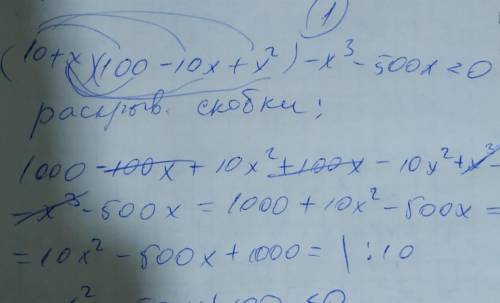 1
(10+x)(100-10x+x²)-x³-500x=0
раскрыв. скобки;
1000-100x+10x²+100x-10x²+x³-
-x³-500x=1000+10x²-500x=
=10x²-500x+1000= | :10